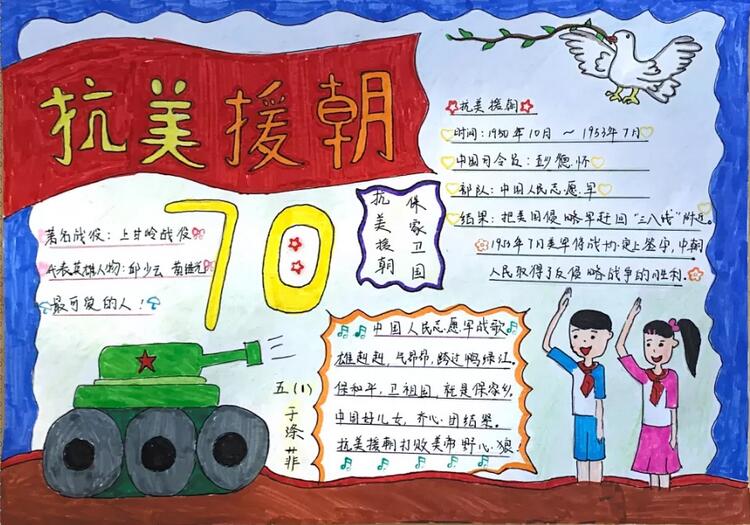 抗美援朝
70
著名战役：上甘岭战役
代表英雄人物：邱少云 黄继光
最可爱的人！
抗美援朝
保家卫国
抗美援朝
时间：1950年10月～1953年7月
中国司令员：彭德怀
部队：中国人民志愿军
结果：把美国侵略军赶回“三八线”附近。
1953年7月美军停战协定上签字，中朝
人民取得了反侵略战争的胜利。
中国人民志愿军战歌
雄赳赳，气昂昂，跨过鸭绿江。
保和平，卫祖国，就是保家乡。
中国好儿女，齐心团结紧。
抗美援朝打败美帝野心狼
五（1）
于涤菲